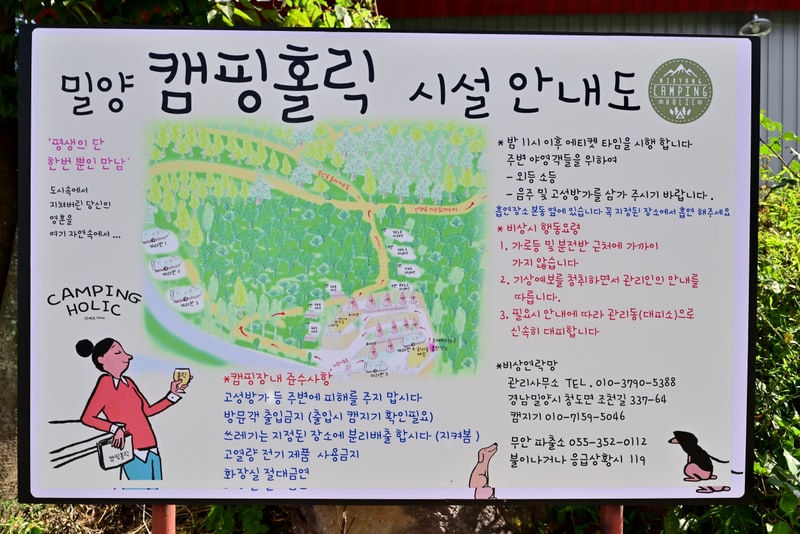 밀양 캠핑홀릭 시설 안내도
MIRYANG
CAMPING
HOLIC
'평생의 단
한번 뿐인 만남'
도시속에서
지쳐버린 당신의
영혼을
여기 자연속에서...
CAMPING
HOLIC
홀릭
캠핑홀릭
*캠핑장내 준수사항
고성방가 등 주변에 피해를 주지 맙시다
방문객 출입금지 (출입시 캠지기 확인필요)
쓰레기는 지정된 장소에 분리배출 합시다 (지켜봄)
고열량 전기 제품 사용금지
화장실 절대금연
* 밤 11시 이후 에티켓 타임을 시행 합니다
주변 야영객들을 위하여
- 외등 소등
- 음주 및 고성방가를 삼가 주시기 바랍니다.
흡연장소 본동 옆에 있습니다 꼭 지정된 장소에서 흡연 해주세요
* 비상시 행동요령
1. 가로등 및 분전반 근처에 가까이
가지 않습니다
2. 기상예보를 청취하면서 관리인의 안내를
따릅니다.
3. 필요시 안내에 따라 관리동(대피소)으로
신속히 대피합니다
*비상연락망
관리사무소 TEL. 010-3790-5388
경남밀양시 청도면 조천길 337-64
캠지기 010-7159-5046
무안 파출소 055-352-0112
불이나거나 응급상황시 119